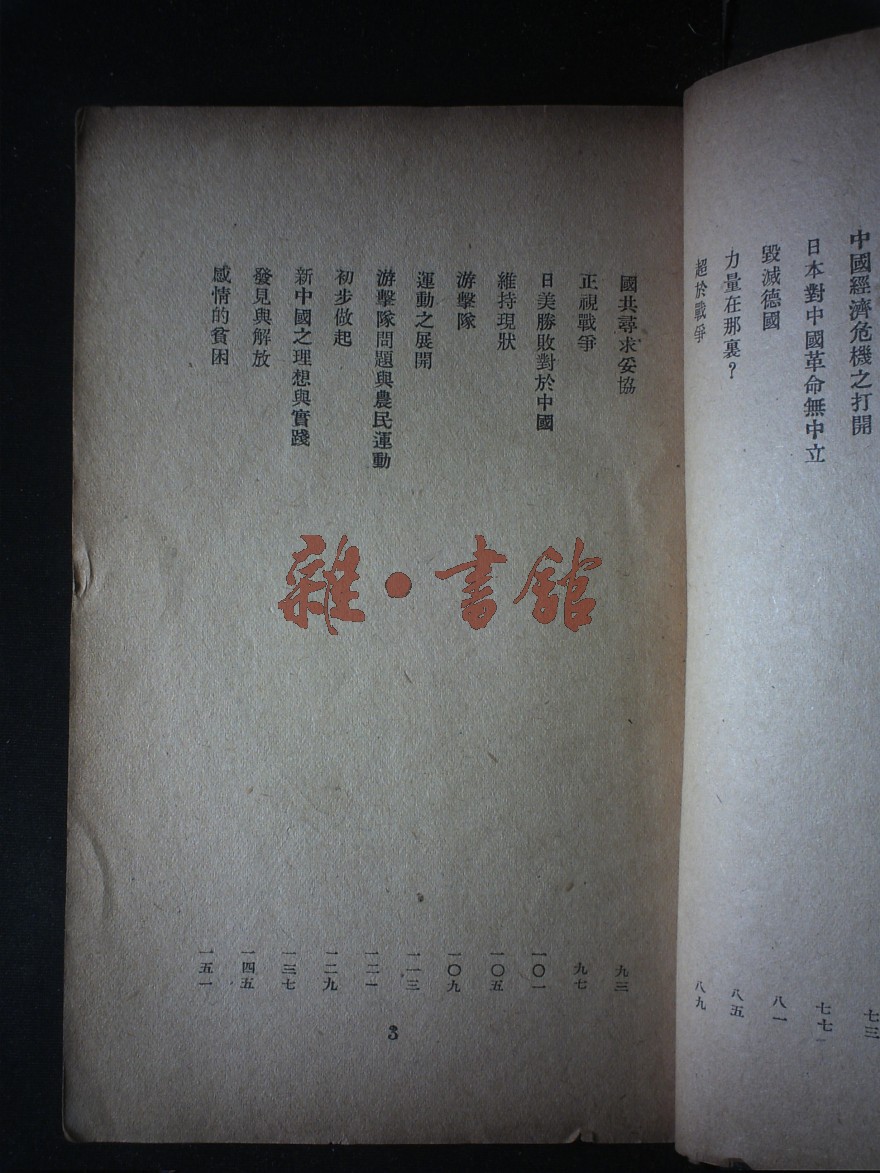 中國經濟危機之打開 七三
日本對中國革命無中立 七七
毀滅德國 八一
力量在那裏？ 八五
超於戰爭 八九
國共尋求妥協 九三
正視戰爭 九七
日美勝敗對於中國 一〇一
維持現狀 一〇五
游擊隊 一〇九
運動之展開 一一三
游擊隊問題與農民運動 一二一
初步做起 一二九
新中國之理想與實踐 一三七
發見與解放 一四五
感情的貧困 一五一
3
雜·書館